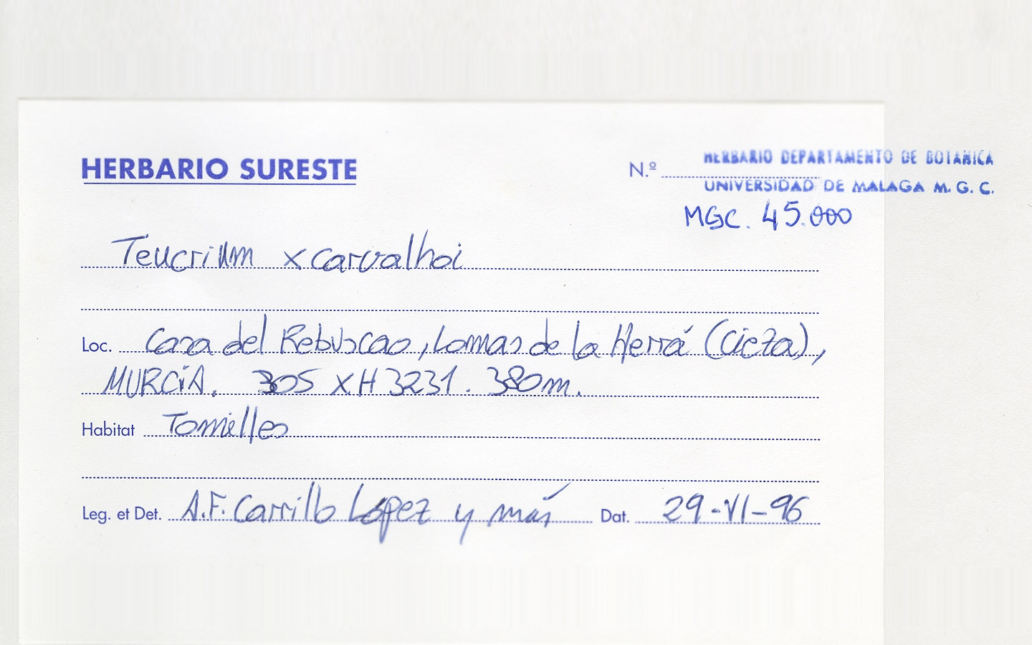 HERBARIO SURESTE
N.º
HERBARIO DEPARTAMENTO DE BOTANICA
UNIVERSIDAD DE MALAGA M. G. C.
MGC. 45.000
Teucrium x carvalhoi
Loc. Casa del Rebuscao, Lomas de la Herrá (Cieza),
MURCIA. 30S XH 3231. 380m.
Habitat Tomilles
Leg. et Det. A.F. Carrillo López y más Dat. 29-VI-96